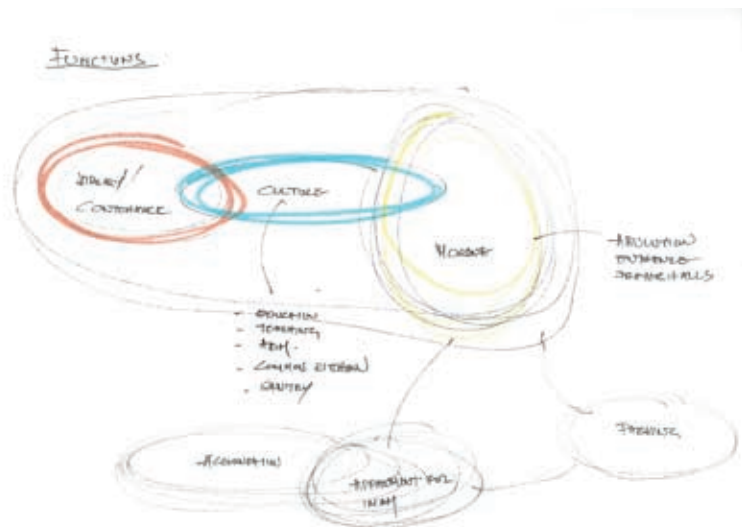 FUNCTIONS
LIBRARY/
CONFERENCE
CULTURE
MOSQUE
- ABLUTION
ENTRANCE
PRAYER HALLS
- EDUCATION
- TEACHING
- ADM.
- COMMON KITCHEN
PARKING
APARTMENT FOR
IMAM